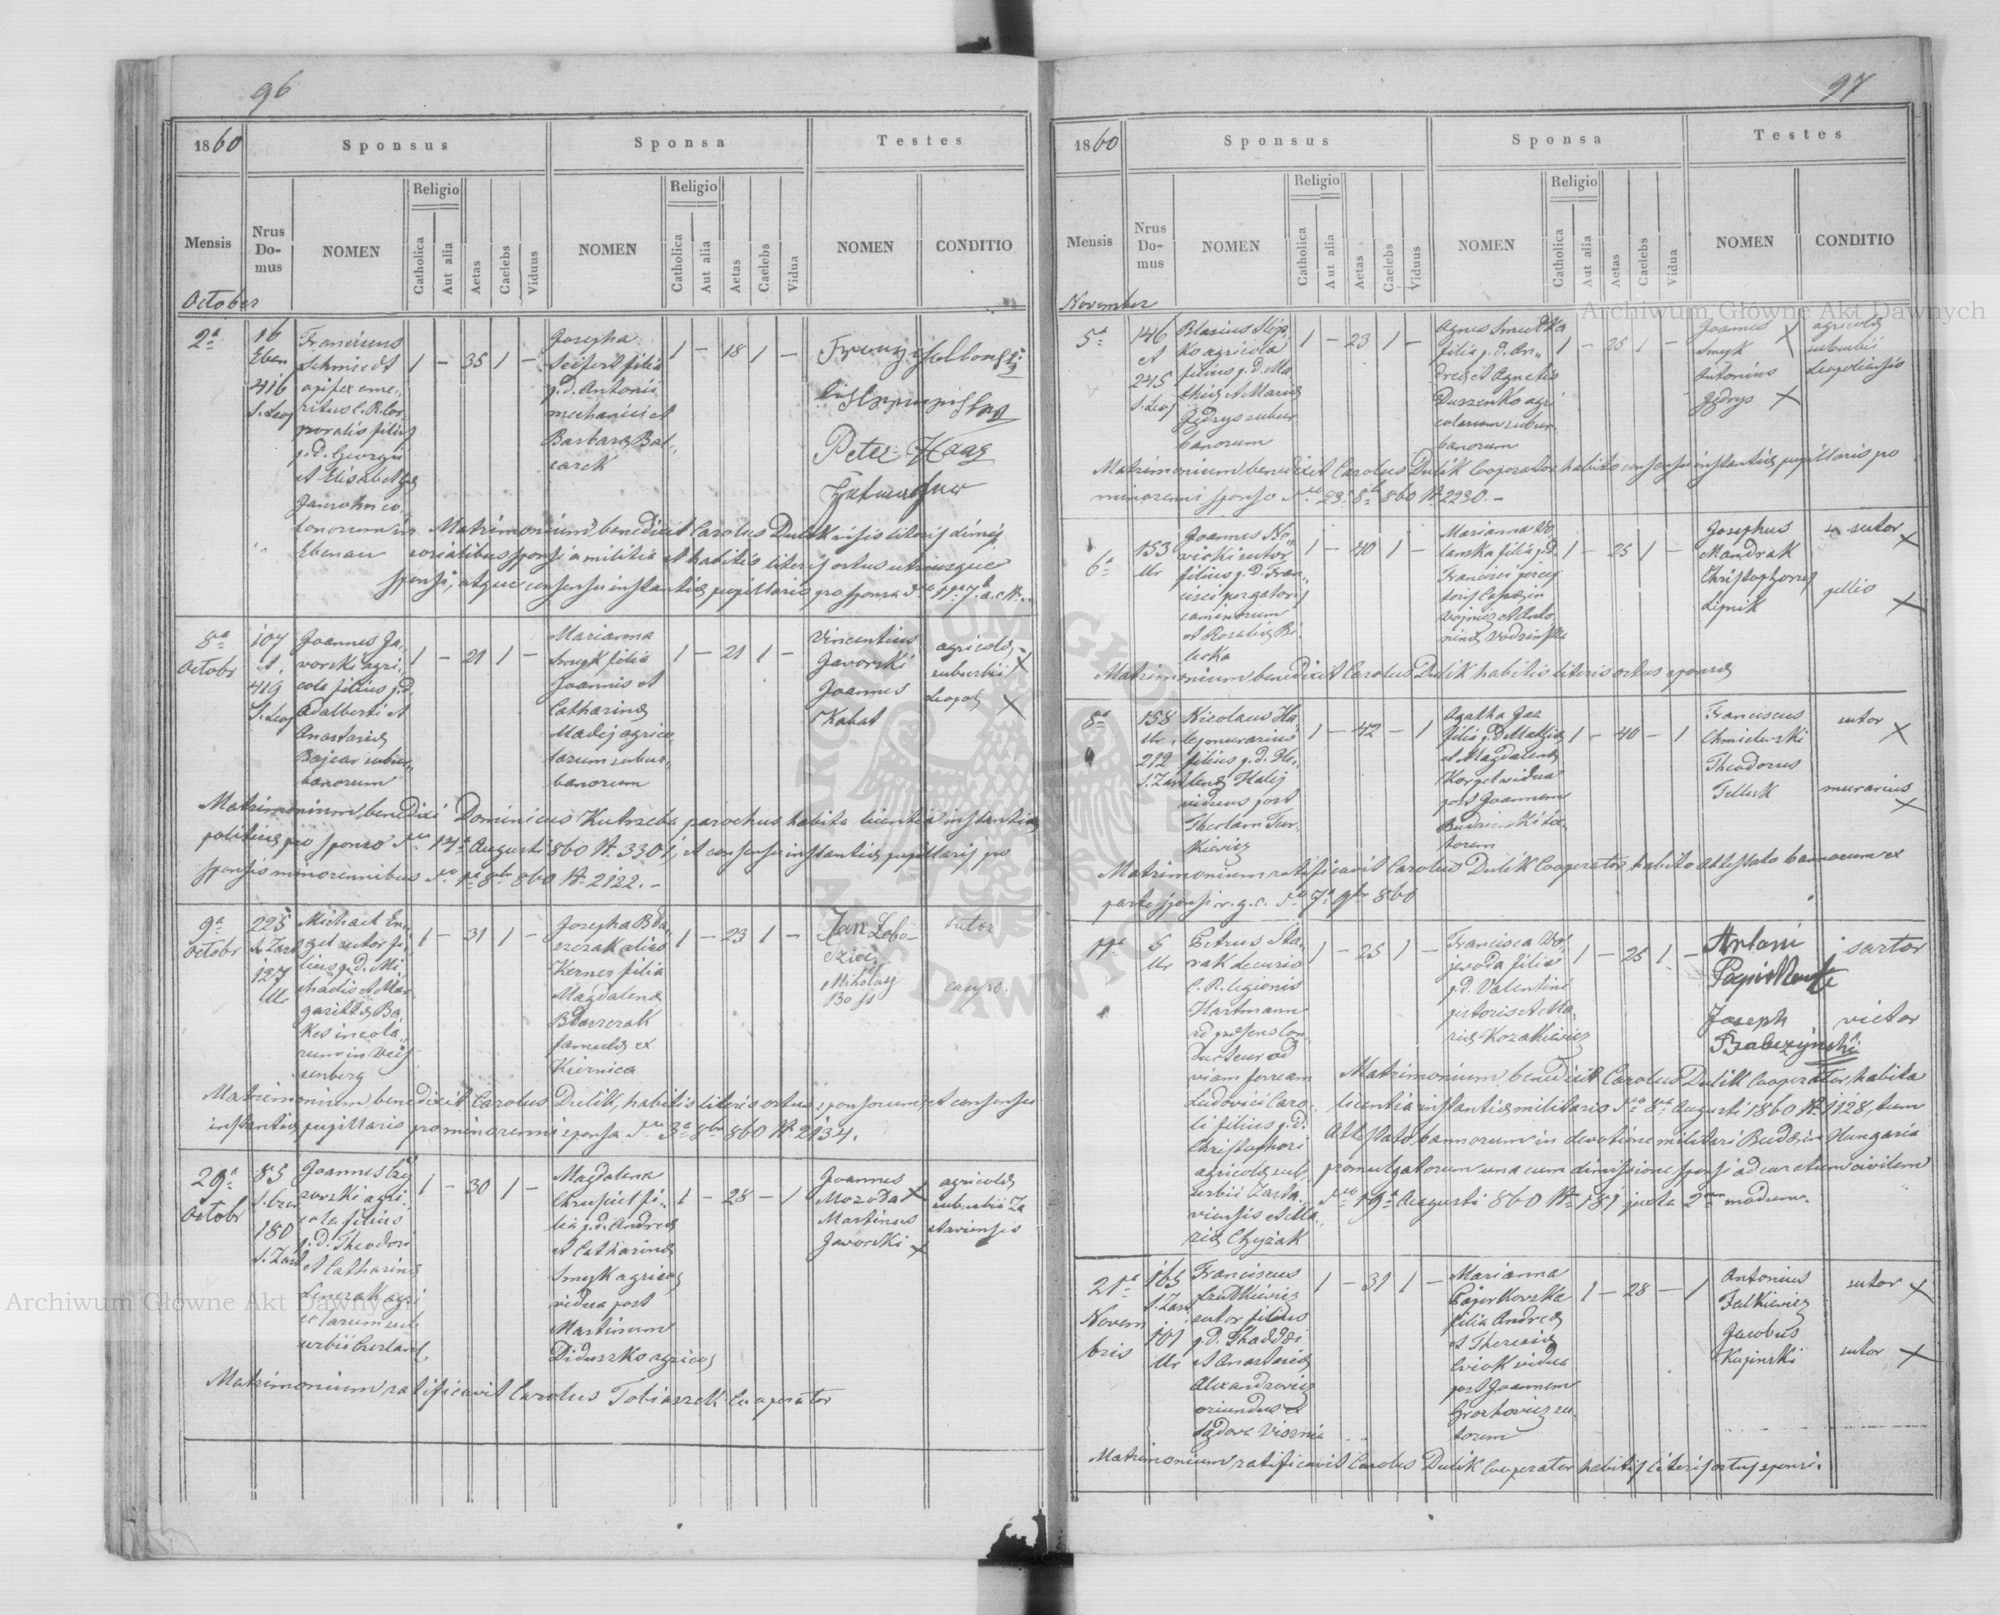 96
1860
Sponsus
Sponsa
Testes
Mensis
Nrus Do-mus
NOMEN
Religio
Catholica
Aut alia
Aetas
Caelebs
Viduus
NOMEN
Religio
Catholica
Aut alia
Aetas
Caelebs
Vidua
NOMEN
CONDITIO
October
2a
16
Eben
416
S. Leop
Franciscus
Schmiedt
emeritus C. R. Cor-
poralis filius
p. d. Georgii
et Elisabethæ
in
Ebenau
1 — 35 1 —
Josepha
Seifert filia
p. d. Antonii
mechanici et
Barbaræ Bal-
carek
1 — 18 1 —
Peter Haag
Matrimonium benedixit Carolus Dulik visis literis dimis-
sorialibus sponsi a militia et habitis literis ortus utriusque
sponsi, atque consensu instantiæ pupillaris pro sponsa
8a
Octobr
107
et
419
S. Leop
Joannes Ja-
worski agri-
cola filius p. d.
Adalberti et
Anastasiæ
Bojcar subur-
banorum
1 — 21 1 —
Marianna
Smyk filia
Joannis et
Catharinæ
Madej agrico-
larum subur-
banorum
1 — 21 1 —
Vincentius
Javorski
Joannes
Kabat
agricolæ
suburbii
Leopol
Matrimonium benedixi Dominicus Kutrzeba parochus habita licentia instantiæ
politicæ pro sponso dto 17a Augusti 860 N. 3301, et consensu instantiæ pupillaris pro
sponsis minorennibus dto 1a 8br 860 N. 2122. —
9a
Octobr
225
S. Zast
127
Ur
Michael En-
gel sutor fi-
lius p. d. Mi-
chaelis et Mar-
garithæ Ba-
kes incola-
rum in Weis-
senberg
1 — 31 1 —
Josepha Bła-
szczak alias
Kernes filia
Magdalenæ
Błaszczak
famulæ ex
Kiernica
1 — 23 1 —
Jan Łobo-
Mikołay
Boss
sutor
caupo
Matrimonium benedixit Carolus Dulik, habitis literis ortus sponsorum, et consensu
instantiæ pupillaris pro minorenni sponsa dto 3a 8br 860 N. 2134.
29a
Octobr
85
180
S. Zast
Joannes
agri-
cola filius
p. d. Theodori
et Catharinæ
Lenczak agri-
colarum sub-
urbii
1 — 30 1 —
Magdalena
filia p. d. Andreæ
et Catharinæ
Smyk agricolæ
vidua post
Martinum
Diduszko agricolæ
1 — 28 — 1
Joannes
Mozoła
Martinus
Javorski
agricolæ
suburbii Za-
staviensis
Matrimonium ratificavit Carolus Tobiaszek Cooperator
97
1860
Sponsus
Sponsa
Testes
Mensis
Nrus Do-mus
NOMEN
Religio
Catholica
Aut alia
Aetas
Caelebs
Viduus
NOMEN
Religio
Catholica
Aut alia
Aetas
Caelebs
Vidua
NOMEN
CONDITIO
November
5a
146
et
245
S. Leop
Blasius Slip-
ko agricola
filius p. d. Ma-
thiæ et Mariæ
Jędrys subur-
banorum
1 — 23 1 —
Agnes Smutka
filia p. d. An-
dreæ et Agnetis
Duszenko agri-
colarum subur-
banorum
1 — 25 1 —
Joannes
Smyk
Antonius
Jędrys
agricolæ
suburbii
Leopoliensis
Matrimonium benedixit Carolus Dulik Cooperator habito consensu instantiæ pupillaris pro
minorenni sponso dto 23. 8br 860 N. 2230. —
6a
153
Ur
Joannes
sutor
filius p. d. Fran-
cisci purgatoris
caminorum
et Rosaliæ Bi-
lecka
1 — 40 1 —
Marianna Wo-
lanska filia p. d.
Francisci
et Anto-
ninæ
1 — 25 1 —
Josephus
Mandrak
Christophorus
Lipnik
sutor
pellio
Matrimonium benedixit Carolus Dulik habitis literis ortus sponsæ
8a
158
Ur
212
S. Zast
Nicolaus Ha-
lej murarius
filius p. d. He-
lenæ Halej
viduus post
Theclam Tur-
kiewicz
1 — 42 — 1
Agatha
filia p. d. Mathiæ
et Magdalenæ
vidua
post Joannem
Budzinski su-
torem
1 — 40 — 1
Franciscus
Chmielewski
Theodorus
Telluk
sutor
murarius
Matrimonium ratificavit Carolus Dulik Cooperator, habito attestato bannorum ex
parte sponsi r. g. c. dto 7a 9br 860
11a
5
Ur
Petrus Sta-
rak decurio
C. R. legionis
Hartmann
ad præsens Con-
ducteur ad
viam ferream
Ludovici Caro-
li filius p. d.
Christophori
agricolæ sub-
urbii Zasta-
viensis et Ma-
riæ Chyżak
1 — 25 1 —
Francisca Wo-
jewoda filia
p. d. Valentini
pistoris et Ma-
riæ Kozakiewicz
1 — 25 1 —
Antoni
Joseph
Bałczyński
sartor
vietor
Matrimonium benedixit Carolus Dulik Cooperator, habita
licentia instantiæ militaris dto 8a Augusti 1860 N. 1128, tum
Attestato bannorum in devotione militari Budæ in Hungaria
promulgatorum una cum dimissione sponsi ad curatum civilem
dto 19a Augusti 860 N. 181 juxta 2um modum.
21a
Novem
bris
165
S. Zast
101
Ur
Franciscus
sutor filius
p. d. Thaddæi
et Anastasiæ
Alexandrovicz
oriundus ex
Sądova Visznia
1 — 31 1 —
Marianna
Pajerkovska
filia Andreæ
et Theresiæ
vidua
post Joannem
Grochovicz su-
torem
1 — 28 — 1
Antonius
Falkiewicz
Jacobus
Kupinski
sutor
sutor
Matrimonium ratificavit Carolus Dulik Cooperator habitis literis ortus sponsi.
Archiwum Główne Akt Dawnych
Archiwum Główne Akt Dawnych
ARCHIWUM GŁÓWNE AKT DAWNYCH